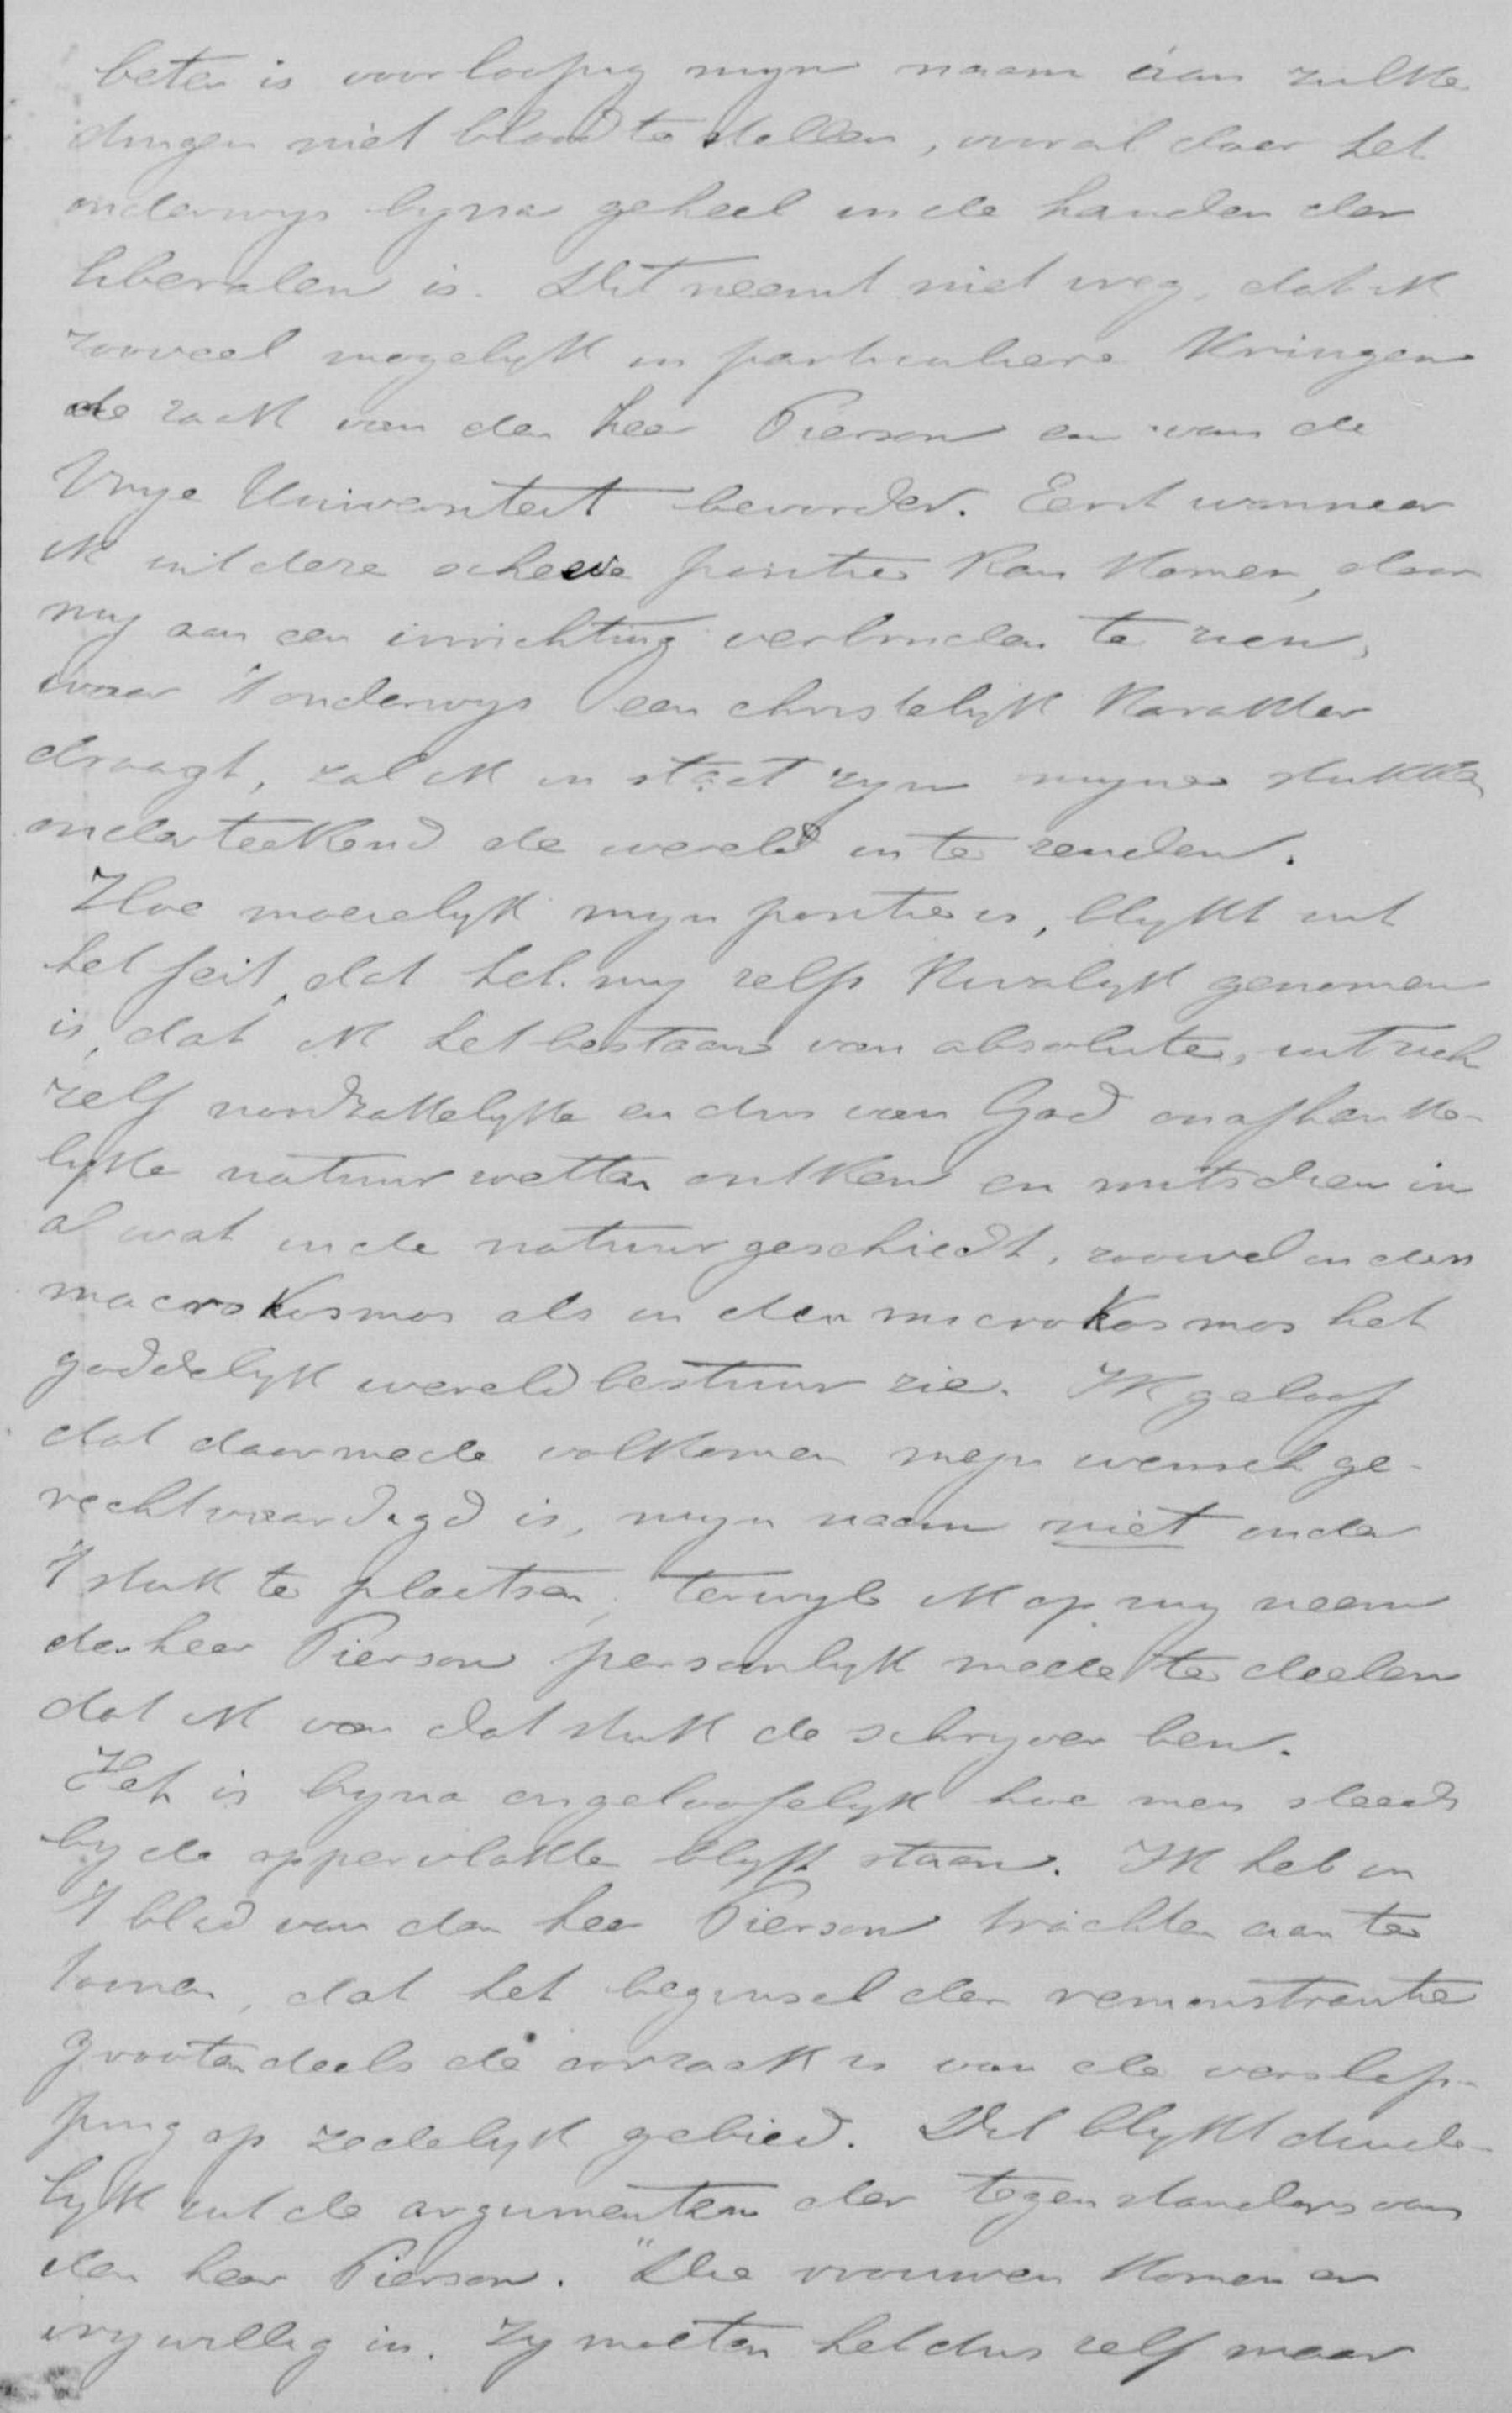 beter is voorloopig myn naam aan zulke
dingen niet bloot te stellen, vooral daar het
onderwys byna geheel in de handen der
liberalen is. Dit neemt niet weg, dat ik
zooveel mogelyk in particuliere kringen
de zaak van den heer Pierson en van de
Vrye Universiteit bevorder. Eerst wanneer
ik uit deze scheeve positie kan komen, door
my aan een inrichting verbonden te zien,
waar 't onderwys een christelyk karakter
draagt, zal ik in staat zyn myne stukken
onderteekend de wereld in te zenden.
Hoe moeielyk myn positie is, blykt uit
het feit, dat het my zelfs kwalyk genomen
is, dat ik het bestaan van absolute, uit zich
zelf noodzakelyke en dus van God onafhanke-
lyke natuurwetten ontken en mitsdien in
al wat in de natuur geschiedt, zoowel in den
macrokosmos als in den microkosmos het
goddelyk wereldbestuur zie. Ik geloof
dat daarmede volkomen myn wensch ge-
rechtvaardigd is, myn naam niet onder
't stuk te plaatsen, terwyl ik op my neem
den heer Pierson persoonlyk mede te deelen
dat ik van dat stuk de schryver ben.
Het is byna ongeloofelyk hoe men steeds
by de oppervlakte blyft staan. Ik heb in
't blad van den heer Pierson trachten aan te
toonen, dat het beginsel der remonstrantie
grootendeels de oorzaak is van de verslap-
ping op zedelyk gebied. Dit blykt duide-
lyk uit de argumenten der tegenstanders van
den heer Pierson. "Die vrouwen komen er
vrywillig in. Zy moeten het dus zelf maar